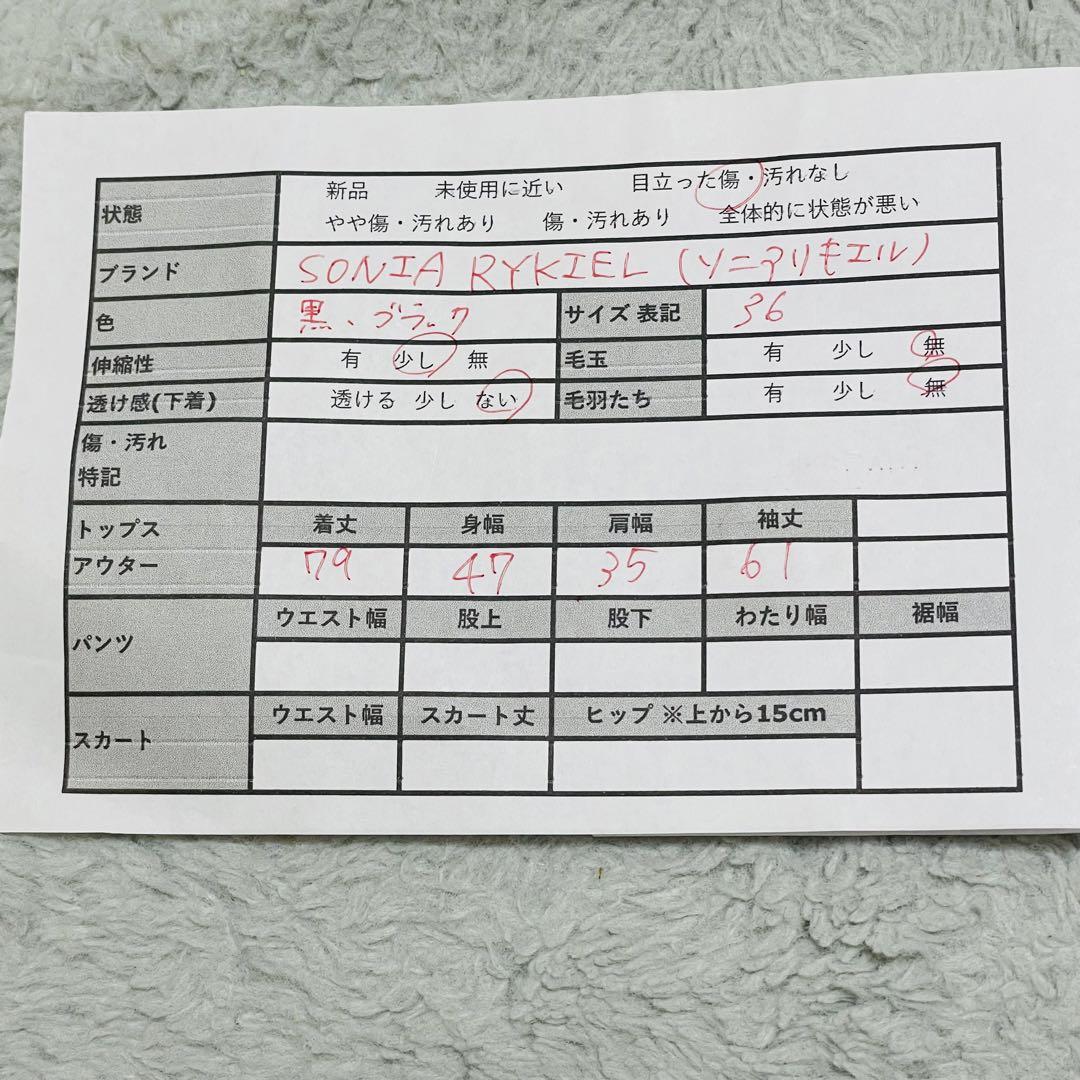 状態 新品 未使用に近い 目立った傷・汚れなし
やや傷・汚れあり 傷・汚れあり 全体的に状態が悪い
ブランド SONIA RYKIEL (ソニアリキエル)
色 黒、ブラック サイズ 表記 36
伸縮性 有 少し 無 毛玉 有 少し 無
透け感(下着) 透ける 少し ない 毛羽たち 有 少し 無
傷・汚れ
特記
トップス 着丈 身幅 肩幅 袖丈
アウター 79 47 35 61
パンツ ウエスト幅 股上 股下 わたり幅 裾幅
スカート ウエスト幅 スカート丈 ヒップ ※上から15cm